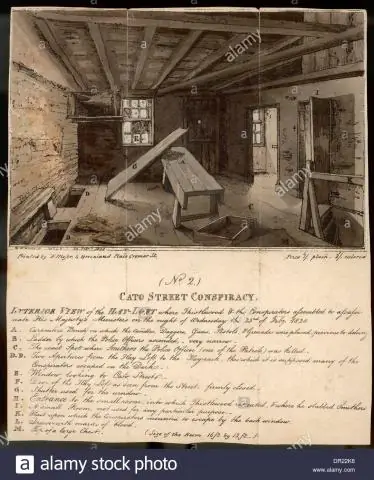 (No 2.)
CATO STREET CONSPIRACY.
INTERIOR VIEW of the HAY-LOFT where Thistlewood & the Conspirators assembled to assassi-
nate His Majesty's Ministers on the night of Wednesday the 23rd of Feby 1820
A. Carpenters Bench on which the Guns Pistols
B. Ladder by which the Police Officers ascended, very narrow.
C. The exact Spot where Smithers the Police Officer (one of the Patrole) was killed.
D.D. Two Apertures from the Hay Loft to the which it is supposed many of the
Conspirators escaped in the Dark.
E. Window looking into Cato Street.
F. Door of the Hay Loft as seen from the Street firmly closed.
G. Shutter used for the window.
H. Entrance to the small room into which Thistlewood retreated, & where he stabbed Smithers
I. Small Room, not used for any particular purpose.
K. upon which the Conspirators mounted to escape by the back window.
L. marks of blood.
M. of a large Chest.
(Size of the Room
Price plain coloured
alamy
a alamy stock photo
DR22K8
www.alamy.com